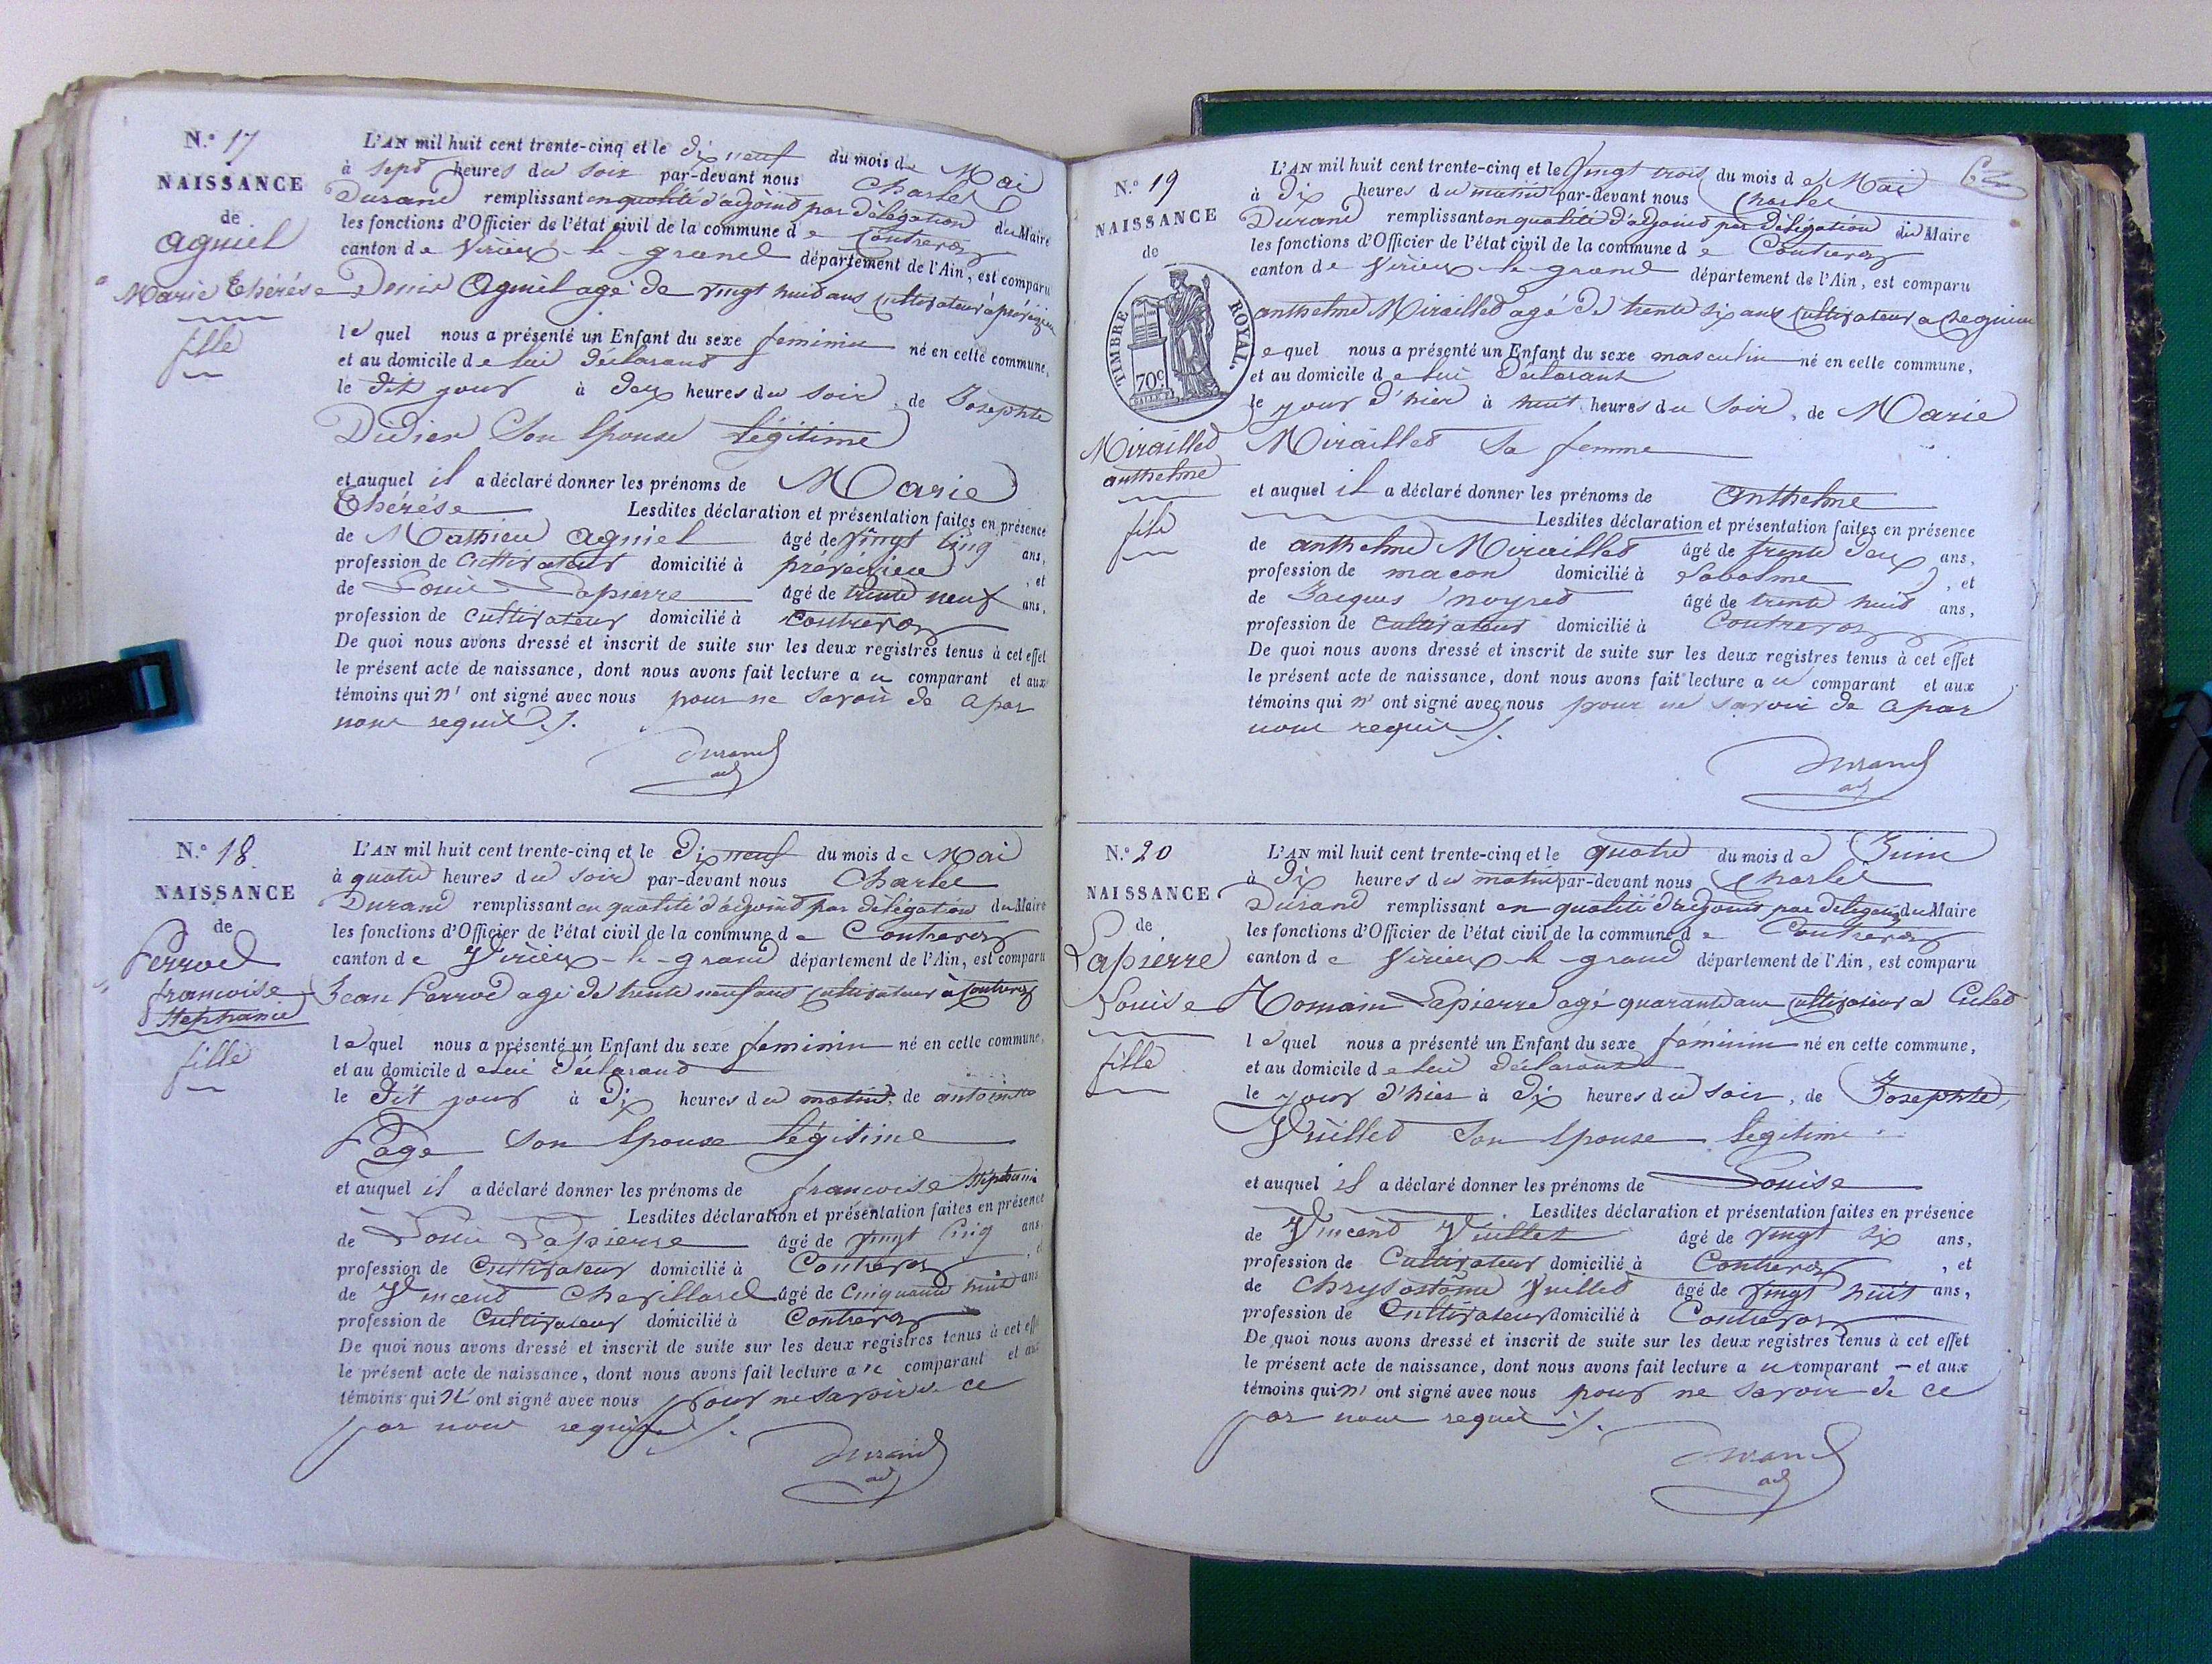 N.o 17
NAISSANCE
de
Agniel
Marie Thérése
fille
L'AN mil huit cent trente-cinq et le Dix neuf du mois de Mai
à sept heures du soir par-devant nous Charles
Durand remplissant en qualité d'adjoind par Délégation du Maire
les fonctions d'Officier de l'état civil de la commune de Contrevoz
canton de Virieux-le-grand département de l'Ain, est comparu
Denis Agniel agé de vingt huit ans Cultivateur à préveizieu
lequel nous a présenté un Enfant du sexe feminin né en cette commune,
et au domicile de lui Déclarant
le Dit jour à deux heures du soir, de Josephte
Didier Son Epouse légitime
et auquel il a déclaré donner les prénoms de Marie
Thérése Lesdites déclaration et présentation faites en présence
de Mathieu Agniel âgé de vingt Cinq ans,
profession de Cultivateur domicilié à préveizieu, et
de Louis Lapierre âgé de trente neuf ans,
profession de Cultivateur domicilié à Contrevoz
De quoi nous avons dressé et inscrit de suite sur les deux registres tenus à cet effet
le présent acte de naissance, dont nous avons fait lecture au comparant et aux
témoins qui n'ont signé avec nous pour ne savoir de a par
nous requis ./.
Durand
adj
N.o 18
NAISSANCE
de
Perrod
francoise
Stephanie
fille
L'AN mil huit cent trente-cinq et le Dix neuf du mois de Mai
à quatre heures du soir par-devant nous Charles
Durand remplissant en qualité d'adjoind par délégation du Maire
les fonctions d'Officier de l'état civil de la commune de Contrevoz
canton de Virieux-le-grand département de l'Ain, est comparu
Jean Perrod agé de trente neuf ans Cultivateur à Contrevoz
lequel nous a présenté un Enfant du sexe feminin né en cette commune,
et au domicile de lui Déclarant
le Dit jour à Dix heures du matin, de antoinette
Page Son Epouse légitime
et auquel il a déclaré donner les prénoms de francoise Stéphanie
Lesdites déclaration et présentation faites en présence
de Louis Lapierre âgé de vingt Cinq ans,
profession de Cultivateur domicilié à Contrevoz, et
de Vincent Chevillard âgé de Cinquante huit ans
profession de Cultivateur domicilié à Contrevoz
De quoi nous avons dressé et inscrit de suite sur les deux registres tenus à cet effet
le présent acte de naissance, dont nous avons fait lecture au comparant et aux
témoins qui n'ont signé avec nous pour ne savoir de ce
par nous requis ./.
Durand
adj
N.o 19
NAISSANCE
de
TIMBRE ROYAL.
70c
Mirailled
anthelme
fils
L'AN mil huit cent trente-cinq et le Vingt trois du mois de Mai
à Dix heures du matin par-devant nous Charles
Durand remplissant en qualité d'adjoind par Délégation du Maire
les fonctions d'Officier de l'état civil de la commune de Contrevoz
canton de Virieux-le-grand département de l'Ain, est comparu
anthelme Mirailled agé de trente Six ans Cultivateur a
lequel nous a présenté un Enfant du sexe masculin né en cette commune,
et au domicile de lui Déclarant
le jour d'hier à huit heures du Soir, de Marie
Mirailled Sa femme
et auquel il a déclaré donner les prénoms de Anthelme
Lesdites déclaration et présentation faites en présence
de anthelme Mirailled âgé de trente deux ans,
profession de macon domicilié à Labalme, et
de Jacques noyred âgé de trente huit ans,
profession de Cultivateur domicilié à Contrevoz
De quoi nous avons dressé et inscrit de suite sur les deux registres tenus à cet effet
le présent acte de naissance, dont nous avons fait lecture au comparant et aux
témoins qui n'ont signé avec nous pour ne savoir de a par
nous requis ./.
Durand
adj
N.o 20
NAISSANCE
de
Lapierre
Louise
fille
L'AN mil huit cent trente-cinq et le quatre du mois de Juin
à Dix heures du matin par-devant nous Charles
Durand remplissant en qualité d'adjoint par délégation du Maire
les fonctions d'Officier de l'état civil de la commune de Contrevoz
canton de Virieux-le-grand département de l'Ain, est comparu
Romain Lapierre agé quarante ans Cultivateur a
lequel nous a présenté un Enfant du sexe féminin né en cette commune,
et au domicile de lui Déclarant
le jour d'hier à Dix heures du soir, de Josephte
Vuilled Son Epouse légitime
et auquel il a déclaré donner les prénoms de Louise
Lesdites déclaration et présentation faites en présence
de Vincend Vuilled âgé de vingt Six ans,
profession de Cultivateur domicilié à Contrevoz, et
de Chrysostôme Vuilled âgé de vingt huit ans,
profession de Cultivateur domicilié à Contrevoz
De quoi nous avons dressé et inscrit de suite sur les deux registres tenus à cet effet
le présent acte de naissance, dont nous avons fait lecture au comparant et aux
témoins qui n'ont signé avec nous pour ne savoir de ce
par nous requis ./.
Durand
adj